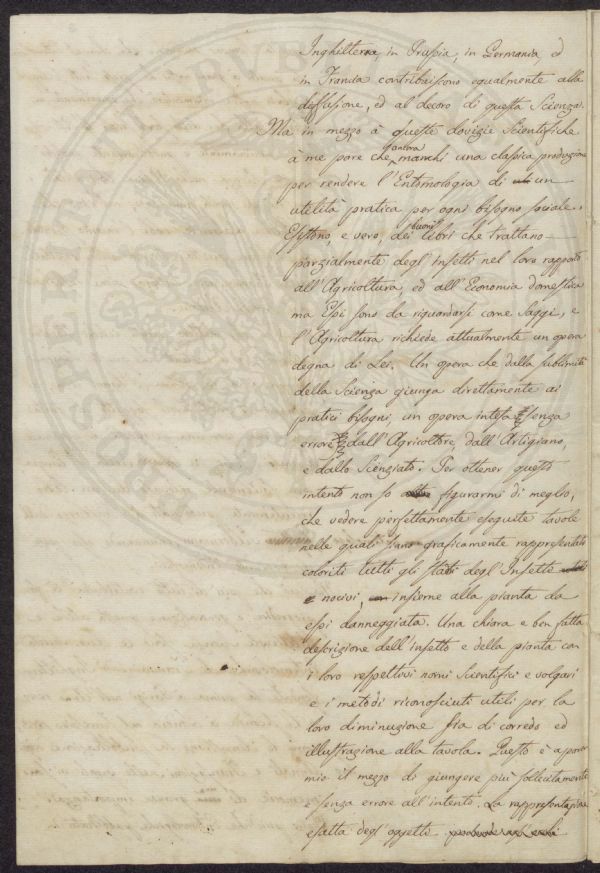 Inghilterra, in Prussia, in Germania, ed
in Francia contribuiscono egualmente alla
deffusione, ed al decoro di questa Scienza.
Ma in mezzo à queste dovizie Scientifiche
à me pare che ancora manchi una classica produzione
per rendere l'Entomologia di un
utilità pratica per ogni bisogno sociale.
Esistono, e vero, dei buoni libri che trattano
parzialmente degl'insetti nel loro rapporto
all'Agricoltura, ed all'Economia domestica
ma Essi sono da riguardarsi come Saggi, e
l'Agricoltura richiede attualmente un opera
degna di Lei. Un opera che dalla sublimità
della Scienza giunga direttamente ai
pratici bisogni, un opera intesa senza
errore dall'Agricoltore, dall'Artigiano,
e dallo Scienziato. Per ottener questo
intento non so figurarmi di meglio,
che vedere perfettamente eseguite tavole
nelle quali siano graficamente rappresentati
coloriti tutti gli stati degl'Insetti
nocivi, insieme alla pianta da
essi danneggiata. Una chiara e ben fatta
descrizione dell'insetto e della pianta con
i loro respettivi nomi Scientifici e volgari
e i metodi riconosciuti utili per la
loro diminuzione sia di corredo ed
illustrazione alla tavola. Questo è a parer
mio il mezzo di giungere più sollecitamente
e senza errore all'intento. La rappresentazione
esatta degl'oggetti